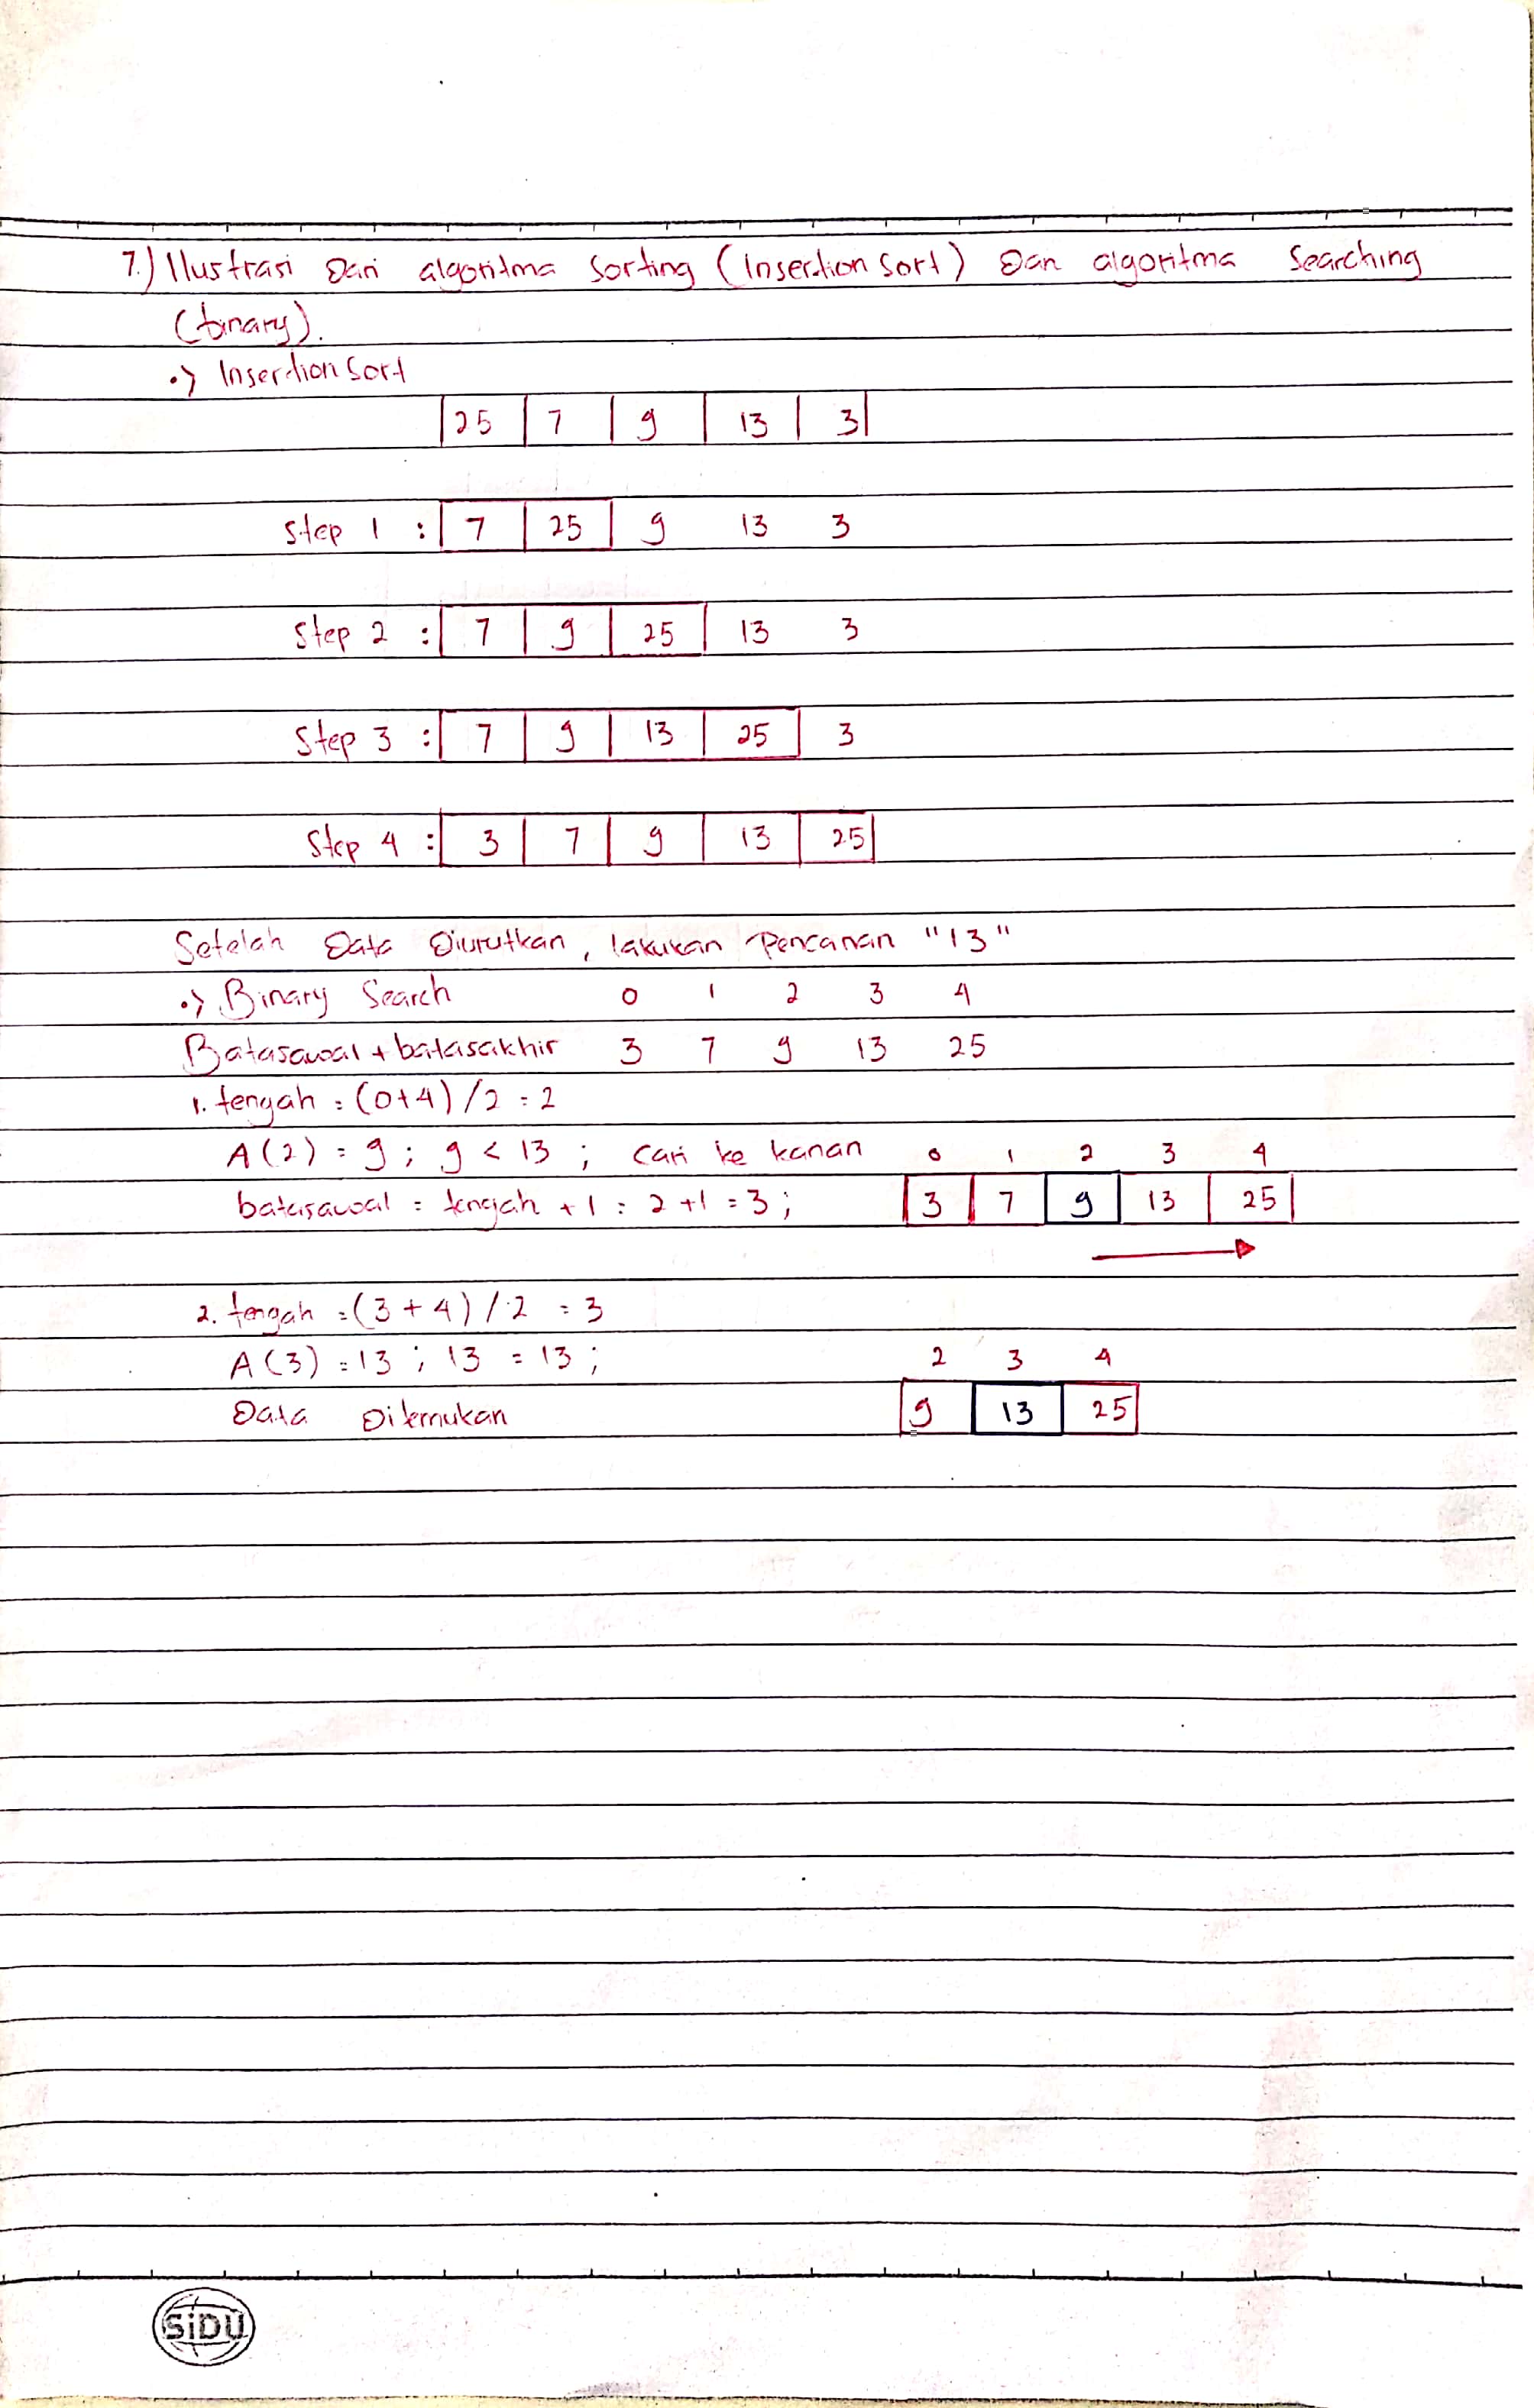 7.) Ilustrasi Dari algoritma Sorting (Insertion Sort) Dan algoritma Searching
(binary).
•> Insertion Sort
25 7 9 13 3
Step 1 : 7 25 9 13 3
Step 2 : 7 9 25 13 3
Step 3 : 7 9 13 25 3
Step 4 : 3 7 9 13 25
Setelah Data Diurutkan, lakukan Pencarian "13"
•> Binary Search 0 1 2 3 4
Batasawal + batasakhir 3 7 9 13 25
1. tengah = (0+4) / 2 = 2
A(2) = 9 ; 9 < 13 ; cari ke kanan 0 1 2 3 4
batasawal = tengah + 1 = 2 + 1 = 3 ; 3 7 9 13 25
2. tengah = (3 + 4) / 2 = 3
A(3) = 13 ; 13 = 13 ; 2 3 4
Data Ditemukan 9 13 25
SiDU